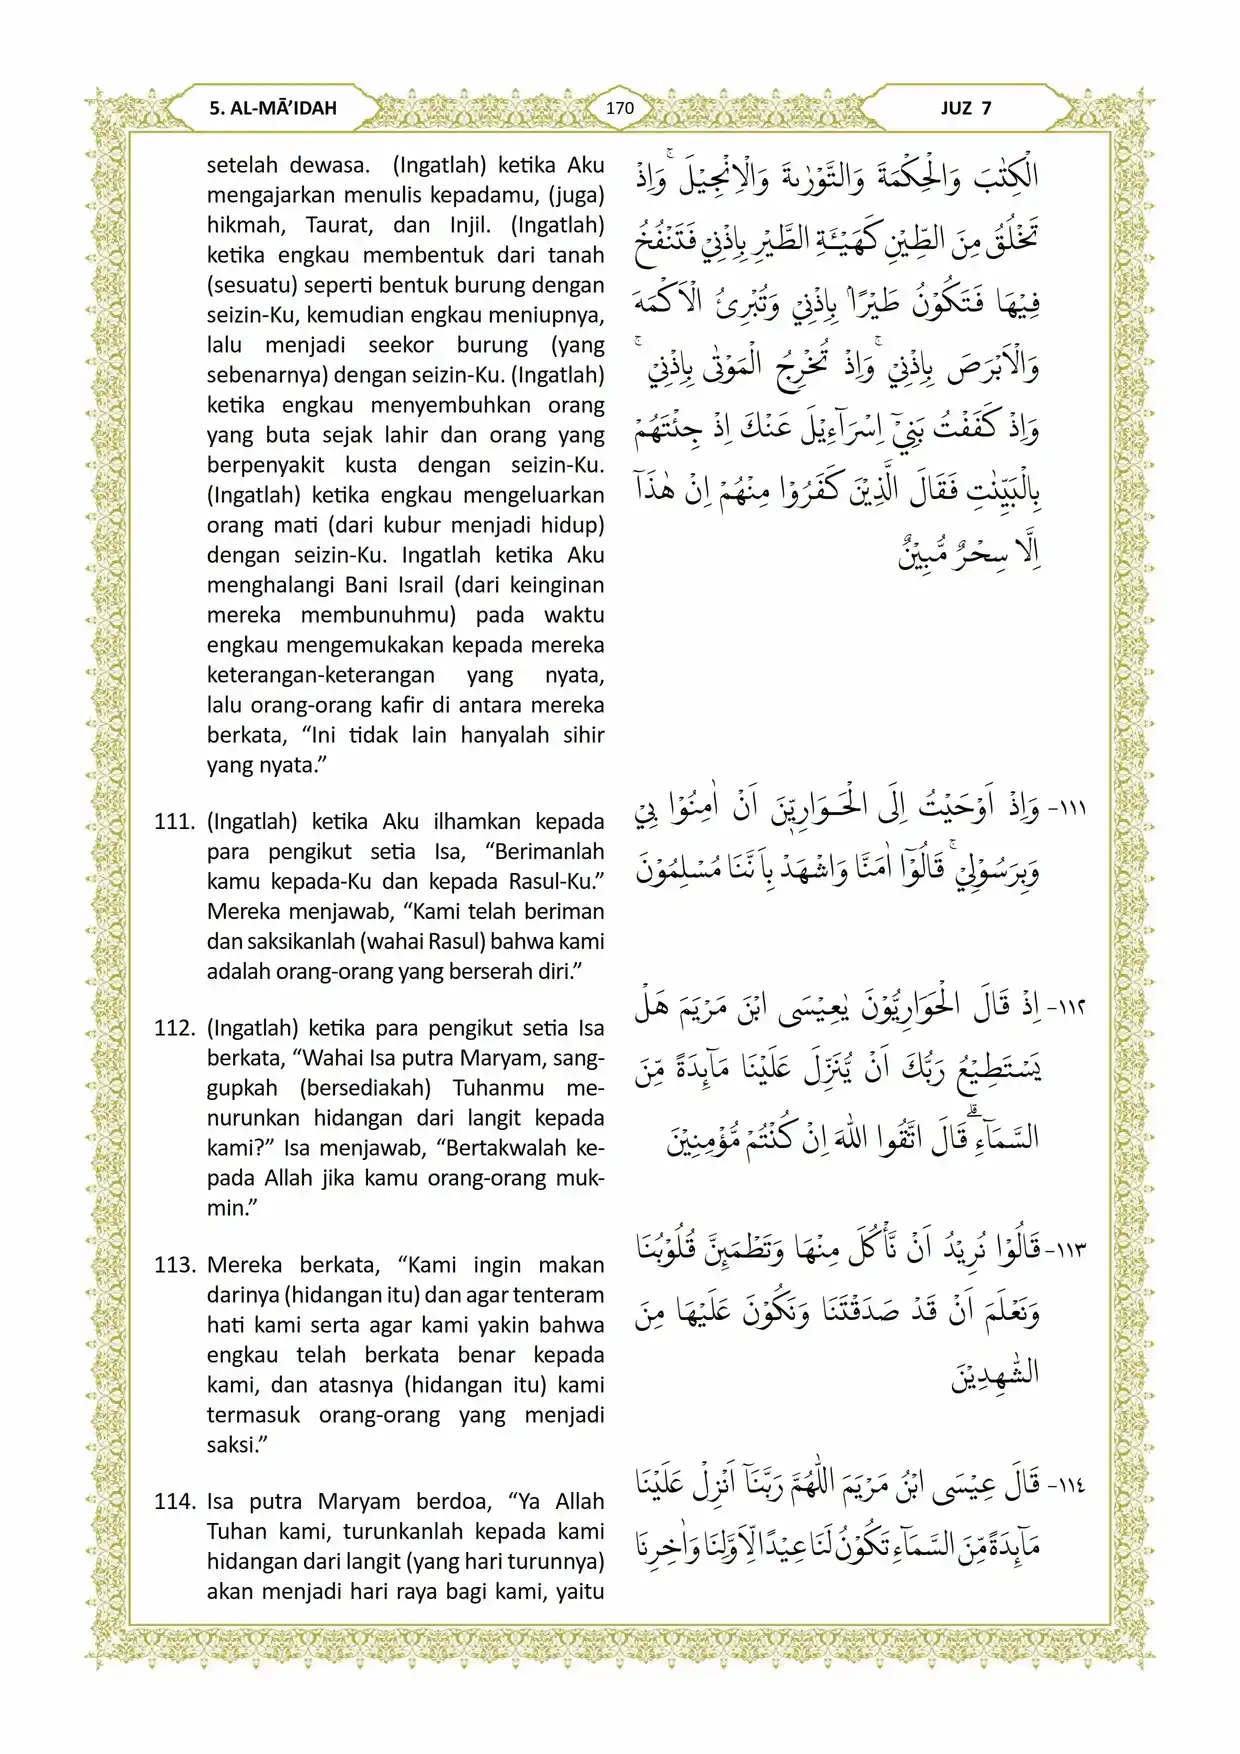 5. AL-MĀ’IDAH
170
JUZ 7
setelah dewasa. (Ingatlah) ketika Aku
mengajarkan menulis kepadamu, (juga)
hikmah, Taurat, dan Injil. (Ingatlah)
ketika engkau membentuk dari tanah
(sesuatu) seperti bentuk burung dengan
seizin-Ku, kemudian engkau meniupnya,
lalu menjadi seekor burung (yang
sebenarnya) dengan seizin-Ku. (Ingatlah)
ketika engkau menyembuhkan orang
yang buta sejak lahir dan orang yang
berpenyakit kusta dengan seizin-Ku.
(Ingatlah) ketika engkau mengeluarkan
orang mati (dari kubur menjadi hidup)
dengan seizin-Ku. Ingatlah ketika Aku
menghalangi Bani Israil (dari keinginan
mereka membunuhmu) pada waktu
engkau mengemukakan kepada mereka
keterangan-keterangan yang nyata,
lalu orang-orang kafir di antara mereka
berkata, “Ini tidak lain hanyalah sihir
yang nyata.”
الْكِتٰبَ وَالْحِكْمَةَ وَالتَّوْرٰىةَ وَالْاِنْجِيْلَ ۚ وَاِذْ
تَخْلُقُ مِنَ الطِّيْنِ كَهَيْـَٔةِ الطَّيْرِ بِاِذْنِيْ فَتَنْفُخُ
فِيْهَا فَتَكُوْنُ طَيْرًاۢ بِاِذْنِيْ وَتُبْرِئُ الْاَكْمَهَ
وَالْاَبْرَصَ بِاِذْنِيْ ۚ وَاِذْ تُخْرِجُ الْمَوْتٰى بِاِذْنِيْ ۚ
وَاِذْ كَفَفْتُ بَنِيْٓ اِسْرَاۤءِيْلَ عَنْكَ اِذْ جِئْتَهُمْ
بِالْبَيِّنٰتِ فَقَالَ الَّذِيْنَ كَفَرُوْا مِنْهُمْ اِنْ هٰذَآ
اِلَّا سِحْرٌ مُّبِيْنٌ
111. (Ingatlah) ketika Aku ilhamkan kepada
para pengikut setia Isa, “Berimanlah
kamu kepada-Ku dan kepada Rasul-Ku.”
Mereka menjawab, “Kami telah beriman
dan saksikanlah (wahai Rasul) bahwa kami
adalah orang-orang yang berserah diri.”
١١١- وَاِذْ اَوْحَيْتُ اِلَى الْحَوَارِيّٖنَ اَنْ اٰمِنُوْا بِيْ
وَبِرَسُوْلِيْ ۚ قَالُوْٓا اٰمَنَّا وَاشْهَدْ بِاَنَّنَا مُسْلِمُوْنَ
112. (Ingatlah) ketika para pengikut setia Isa
berkata, “Wahai Isa putra Maryam, sang-
gupkah (bersediakah) Tuhanmu me-
nurunkan hidangan dari langit kepada
kami?” Isa menjawab, “Bertakwalah ke-
pada Allah jika kamu orang-orang muk-
min.”
١١٢- اِذْ قَالَ الْحَوَارِيُّوْنَ يٰعِيْسَى ابْنَ مَرْيَمَ هَلْ
يَسْتَطِيْعُ رَبُّكَ اَنْ يُّنَزِّلَ عَلَيْنَا مَاۤىِٕدَةً مِّنَ
السَّمَاۤءِ ۗقَالَ اتَّقُوا اللّٰهَ اِنْ كُنْتُمْ مُّؤْمِنِيْنَ
113. Mereka berkata, “Kami ingin makan
darinya (hidangan itu) dan agar tenteram
hati kami serta agar kami yakin bahwa
engkau telah berkata benar kepada
kami, dan atasnya (hidangan itu) kami
termasuk orang-orang yang menjadi
saksi.”
١١٣- قَالُوْا نُرِيْدُ اَنْ نَّأْكُلَ مِنْهَا وَتَطْمَىِٕنَّ قُلُوْبُنَا
وَنَعْلَمَ اَنْ قَدْ صَدَقْتَنَا وَنَكُوْنَ عَلَيْهَا مِنَ
الشّٰهِدِيْنَ
114. Isa putra Maryam berdoa, “Ya Allah
Tuhan kami, turunkanlah kepada kami
hidangan dari langit (yang hari turunnya)
akan menjadi hari raya bagi kami, yaitu
١١٤- قَالَ عِيْسَى ابْنُ مَرْيَمَ اللّٰهُمَّ رَبَّنَآ اَنْزِلْ عَلَيْنَا
مَاۤىِٕدَةً مِّنَ السَّمَاۤءِ تَكُوْنُ لَنَا عِيْدًا لِّاَوَّلِنَا وَاٰخِرِنَا